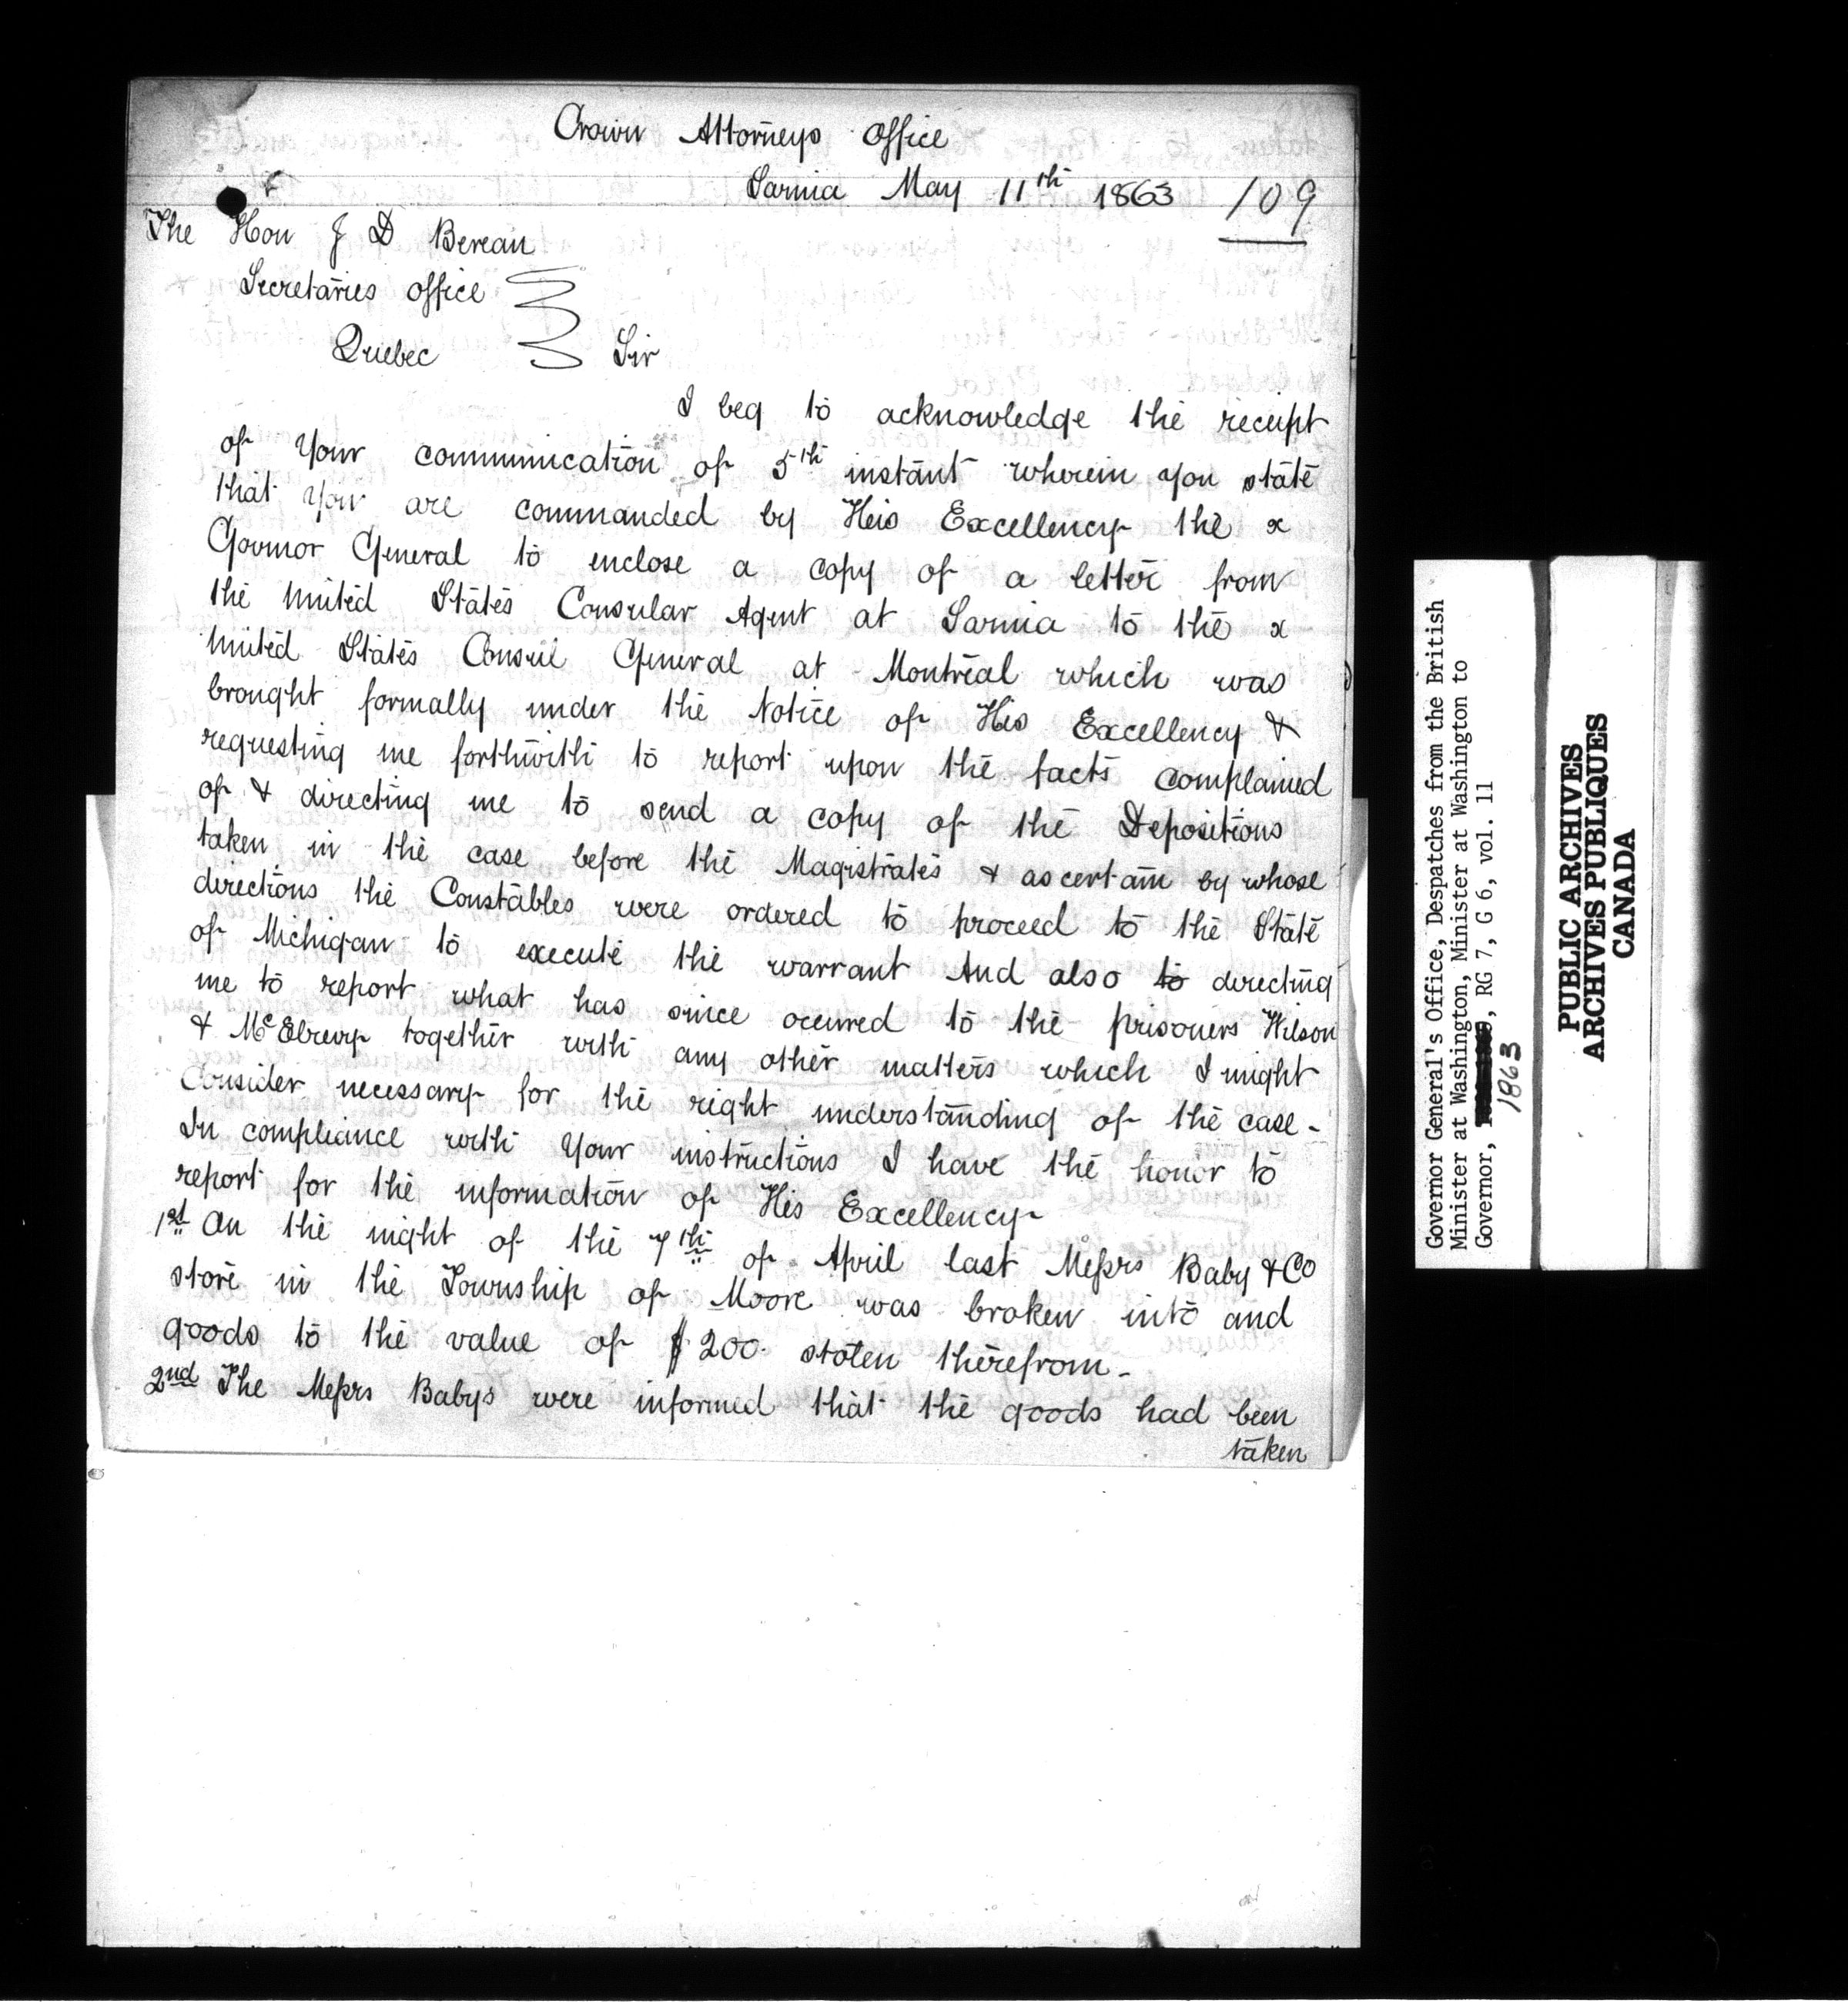 Crown Attorneys Office
Sarnia May 11th 1863
109
The Hon J D Bereau
Secretaries Office
Quebec Sir
I beg to acknowledge the receipt
of Your communication of 5th instant wherein you state
that You are commanded by His Excellency the x
Govrnor General to enclose a copy of a letter from
the United States Consular Agent at Sarnia to the x
United States Consul General at Montreal which was
brought formally under the Notice of His Excellency &
requesting me forthwith to report upon the facts complained
of & directing me to send a copy of the Depositions
taken in the case before the Magistrates & ascertain by whose
directions the Constables were ordered to proceed to the State
of Michigan to execute the warrant And also to directing
me to report what has since occured to the prisoners Wilson
& McElrevy together with any other matters which I might
Consider necessary for the right understanding of the case -
In compliance with Your instructions I have the honor to
report for the information of His Excellency
1st On the night of the 7th of April last Messrs Baby & Co
store in the Township of Moore was broken into and
goods to the value of $200. stolen therefrom -
2nd The Messrs Babys were informed that the goods had been
taken
Governor General's Office, Despatches from the British
Minister at Washington, Minister at Washington to
Governor, , RG 7, G 6, vol. 11
1863
PUBLIC ARCHIVES
ARCHIVES PUBLIQUES
CANADA